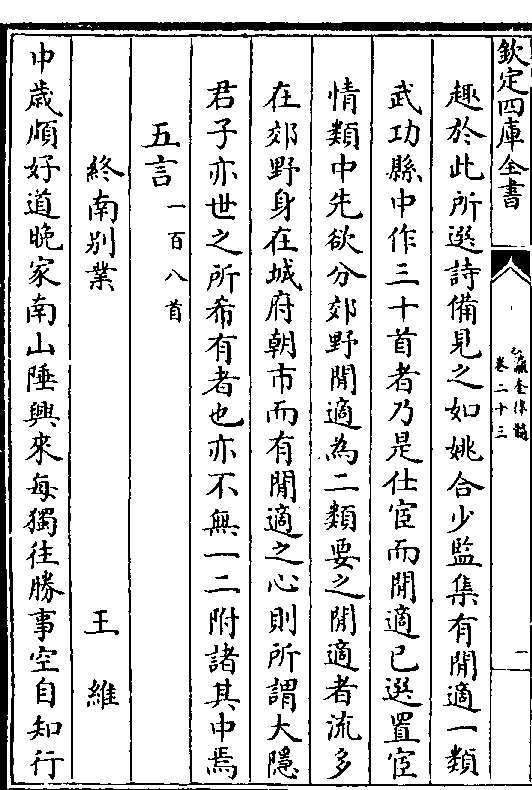 欽定四庫全書
瀛奎律髓
卷二十三
一
趣於此所選詩備見之如姚合少監集有閒適一類
武功縣中作三十首者乃是仕宦而閒適已選置宦
情類中先欲分郊野閒適為二類要之閒適者流多
在郊野身在城府朝市而有閒適之心則所謂大隱
君子亦世之所希有者也亦不無一二附諸其中焉
五言一百八首
終南別業　王維
中歲頗好道晚家南山陲興來每獨往勝事空自知行